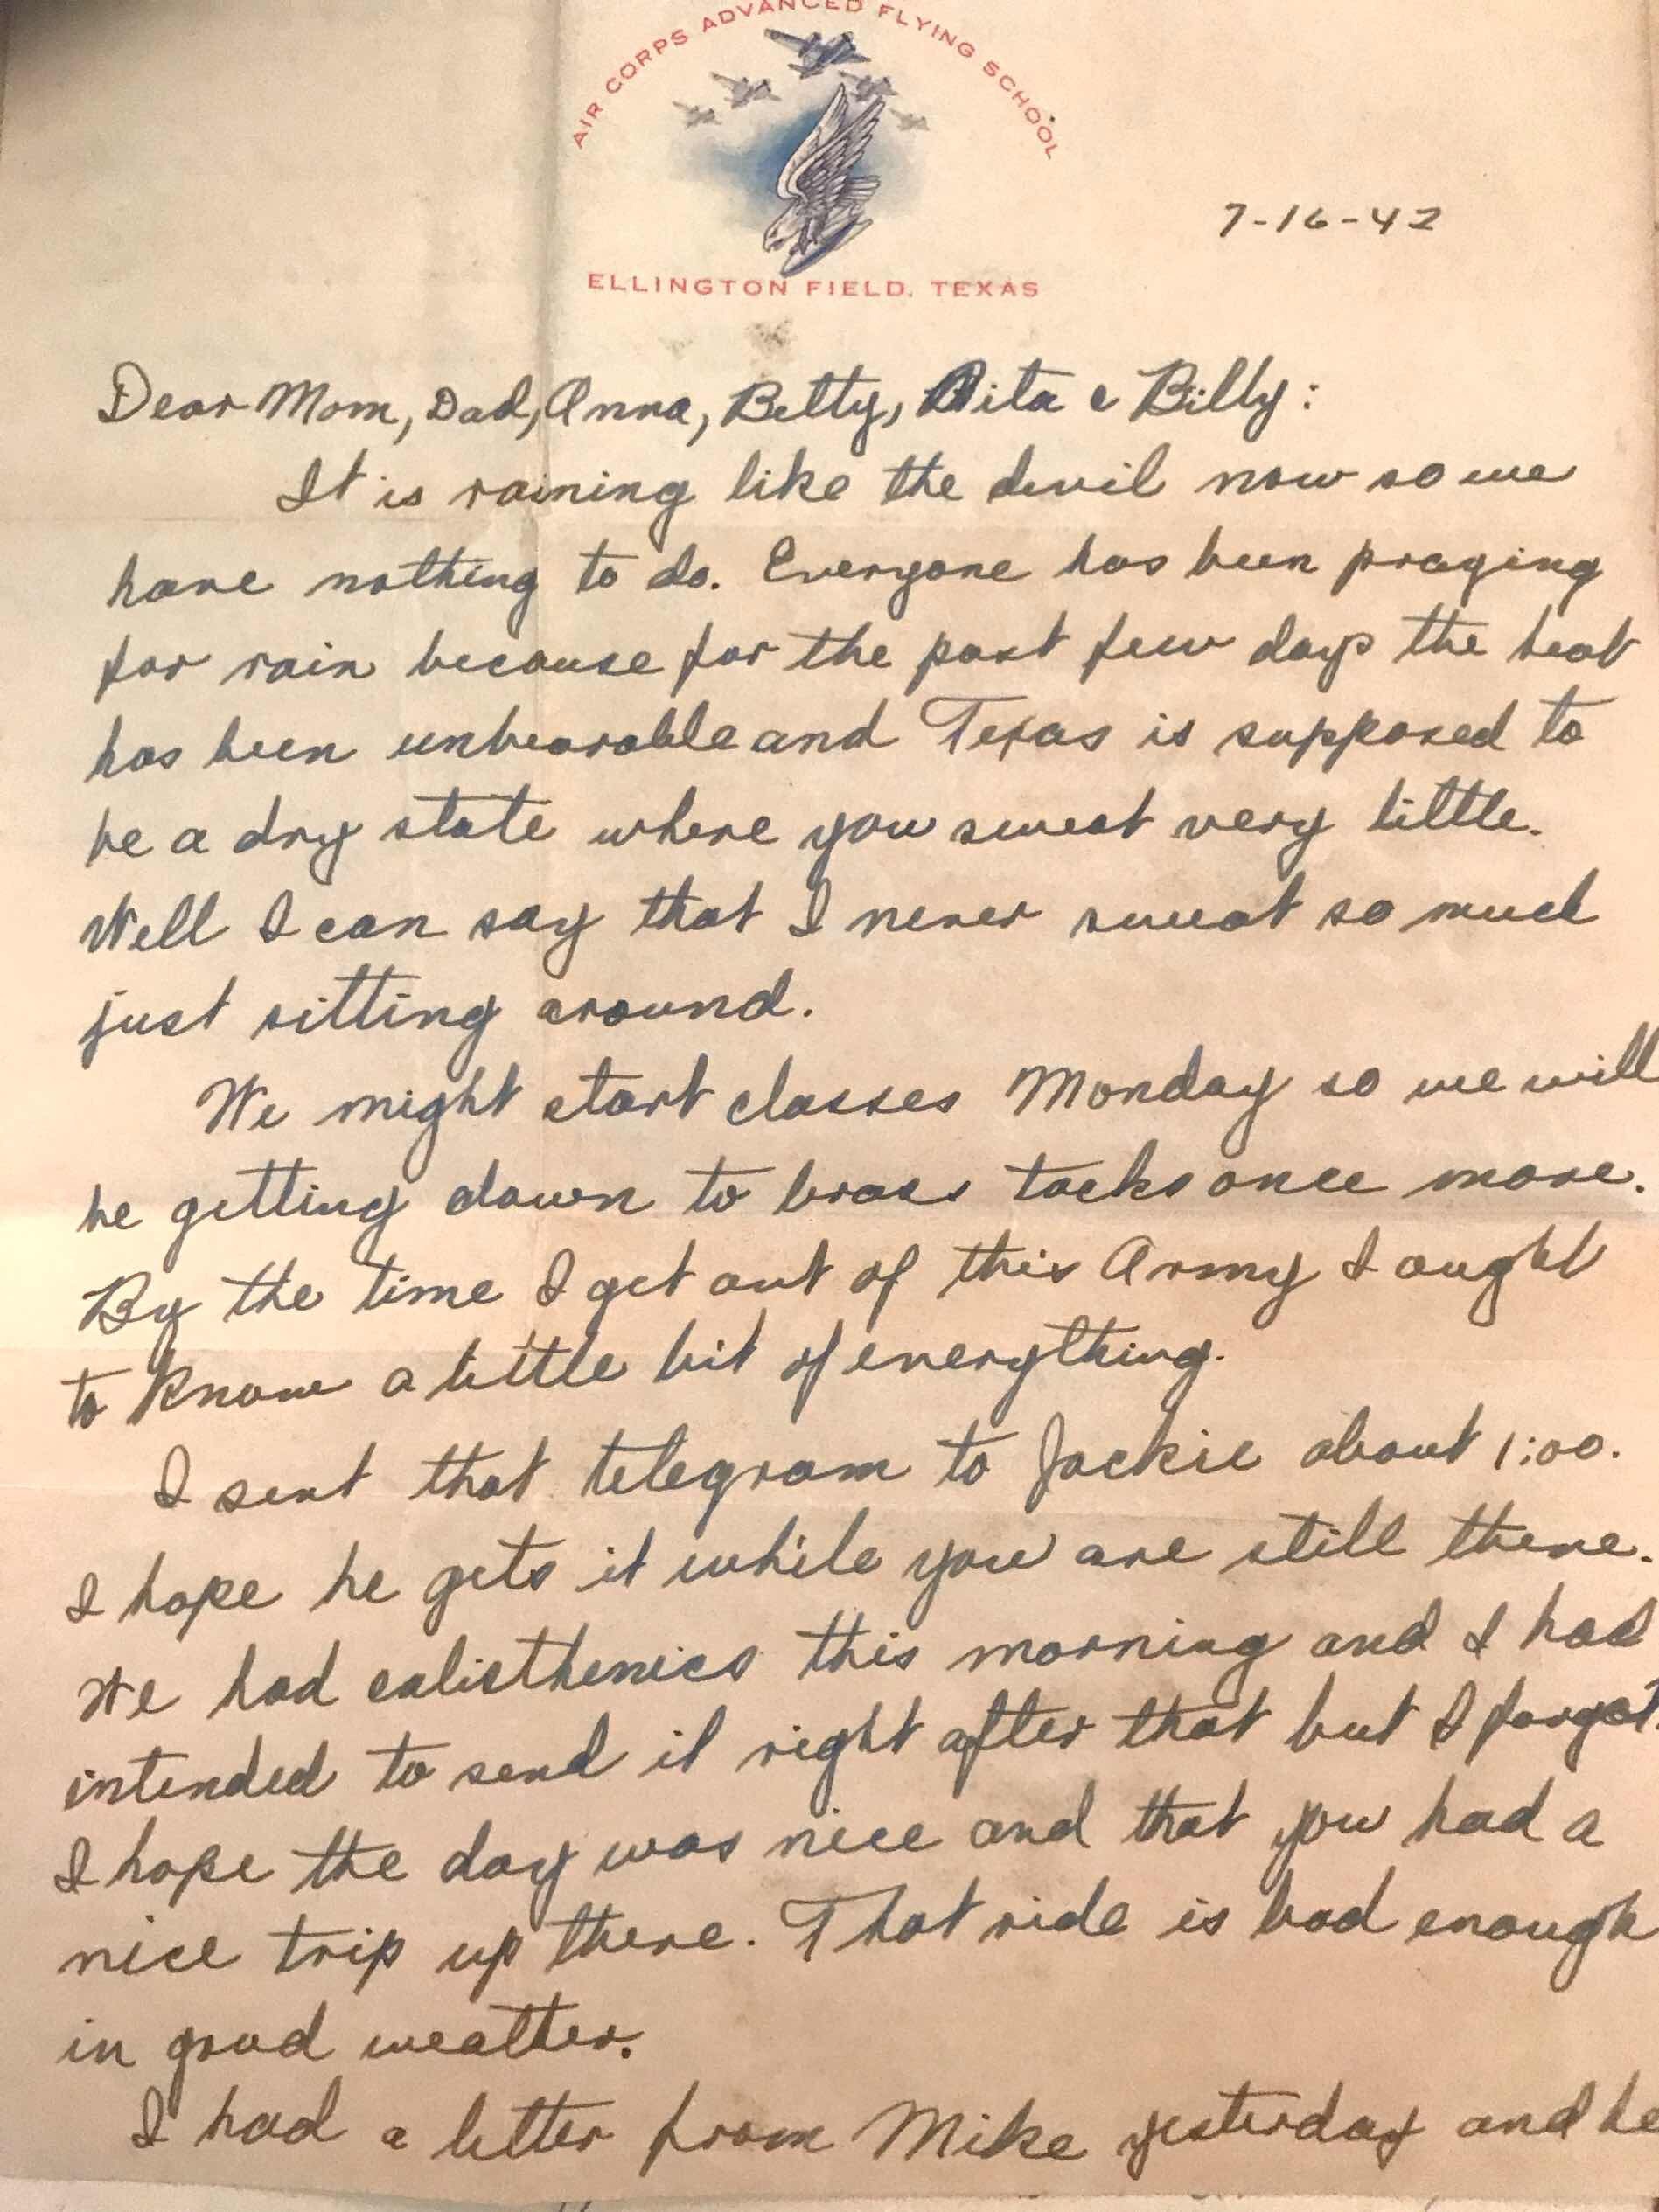 AIR CORPS ADVANCED FLYING SCHOOL
ELLINGTON FIELD, TEXAS
7-16-42
Dear Mom, Dad, Anna, Betty, Rita & Billy:
It is raining like the devil now so we
have nothing to do. Everyone has been praying
for rain because for the past few days the heat
has been unbearable and Texas is supposed to
be a dry state where you sweat very little.
Well I can say that I never sweat so much
just sitting around.
We might start classes Monday so we will
be getting down to brass tacks once more.
By the time I get out of this Army I ought
to know a little bit of everything.
I sent that telegram to Jackie about 1:00.
I hope he gets it while you are still there.
We had calisthenics this morning and I had
intended to send it right after that but I forgot.
I hope the day was nice and that you had a
nice trip up there. That ride is bad enough
in good weather.
I had a letter from Mike yesterday and he